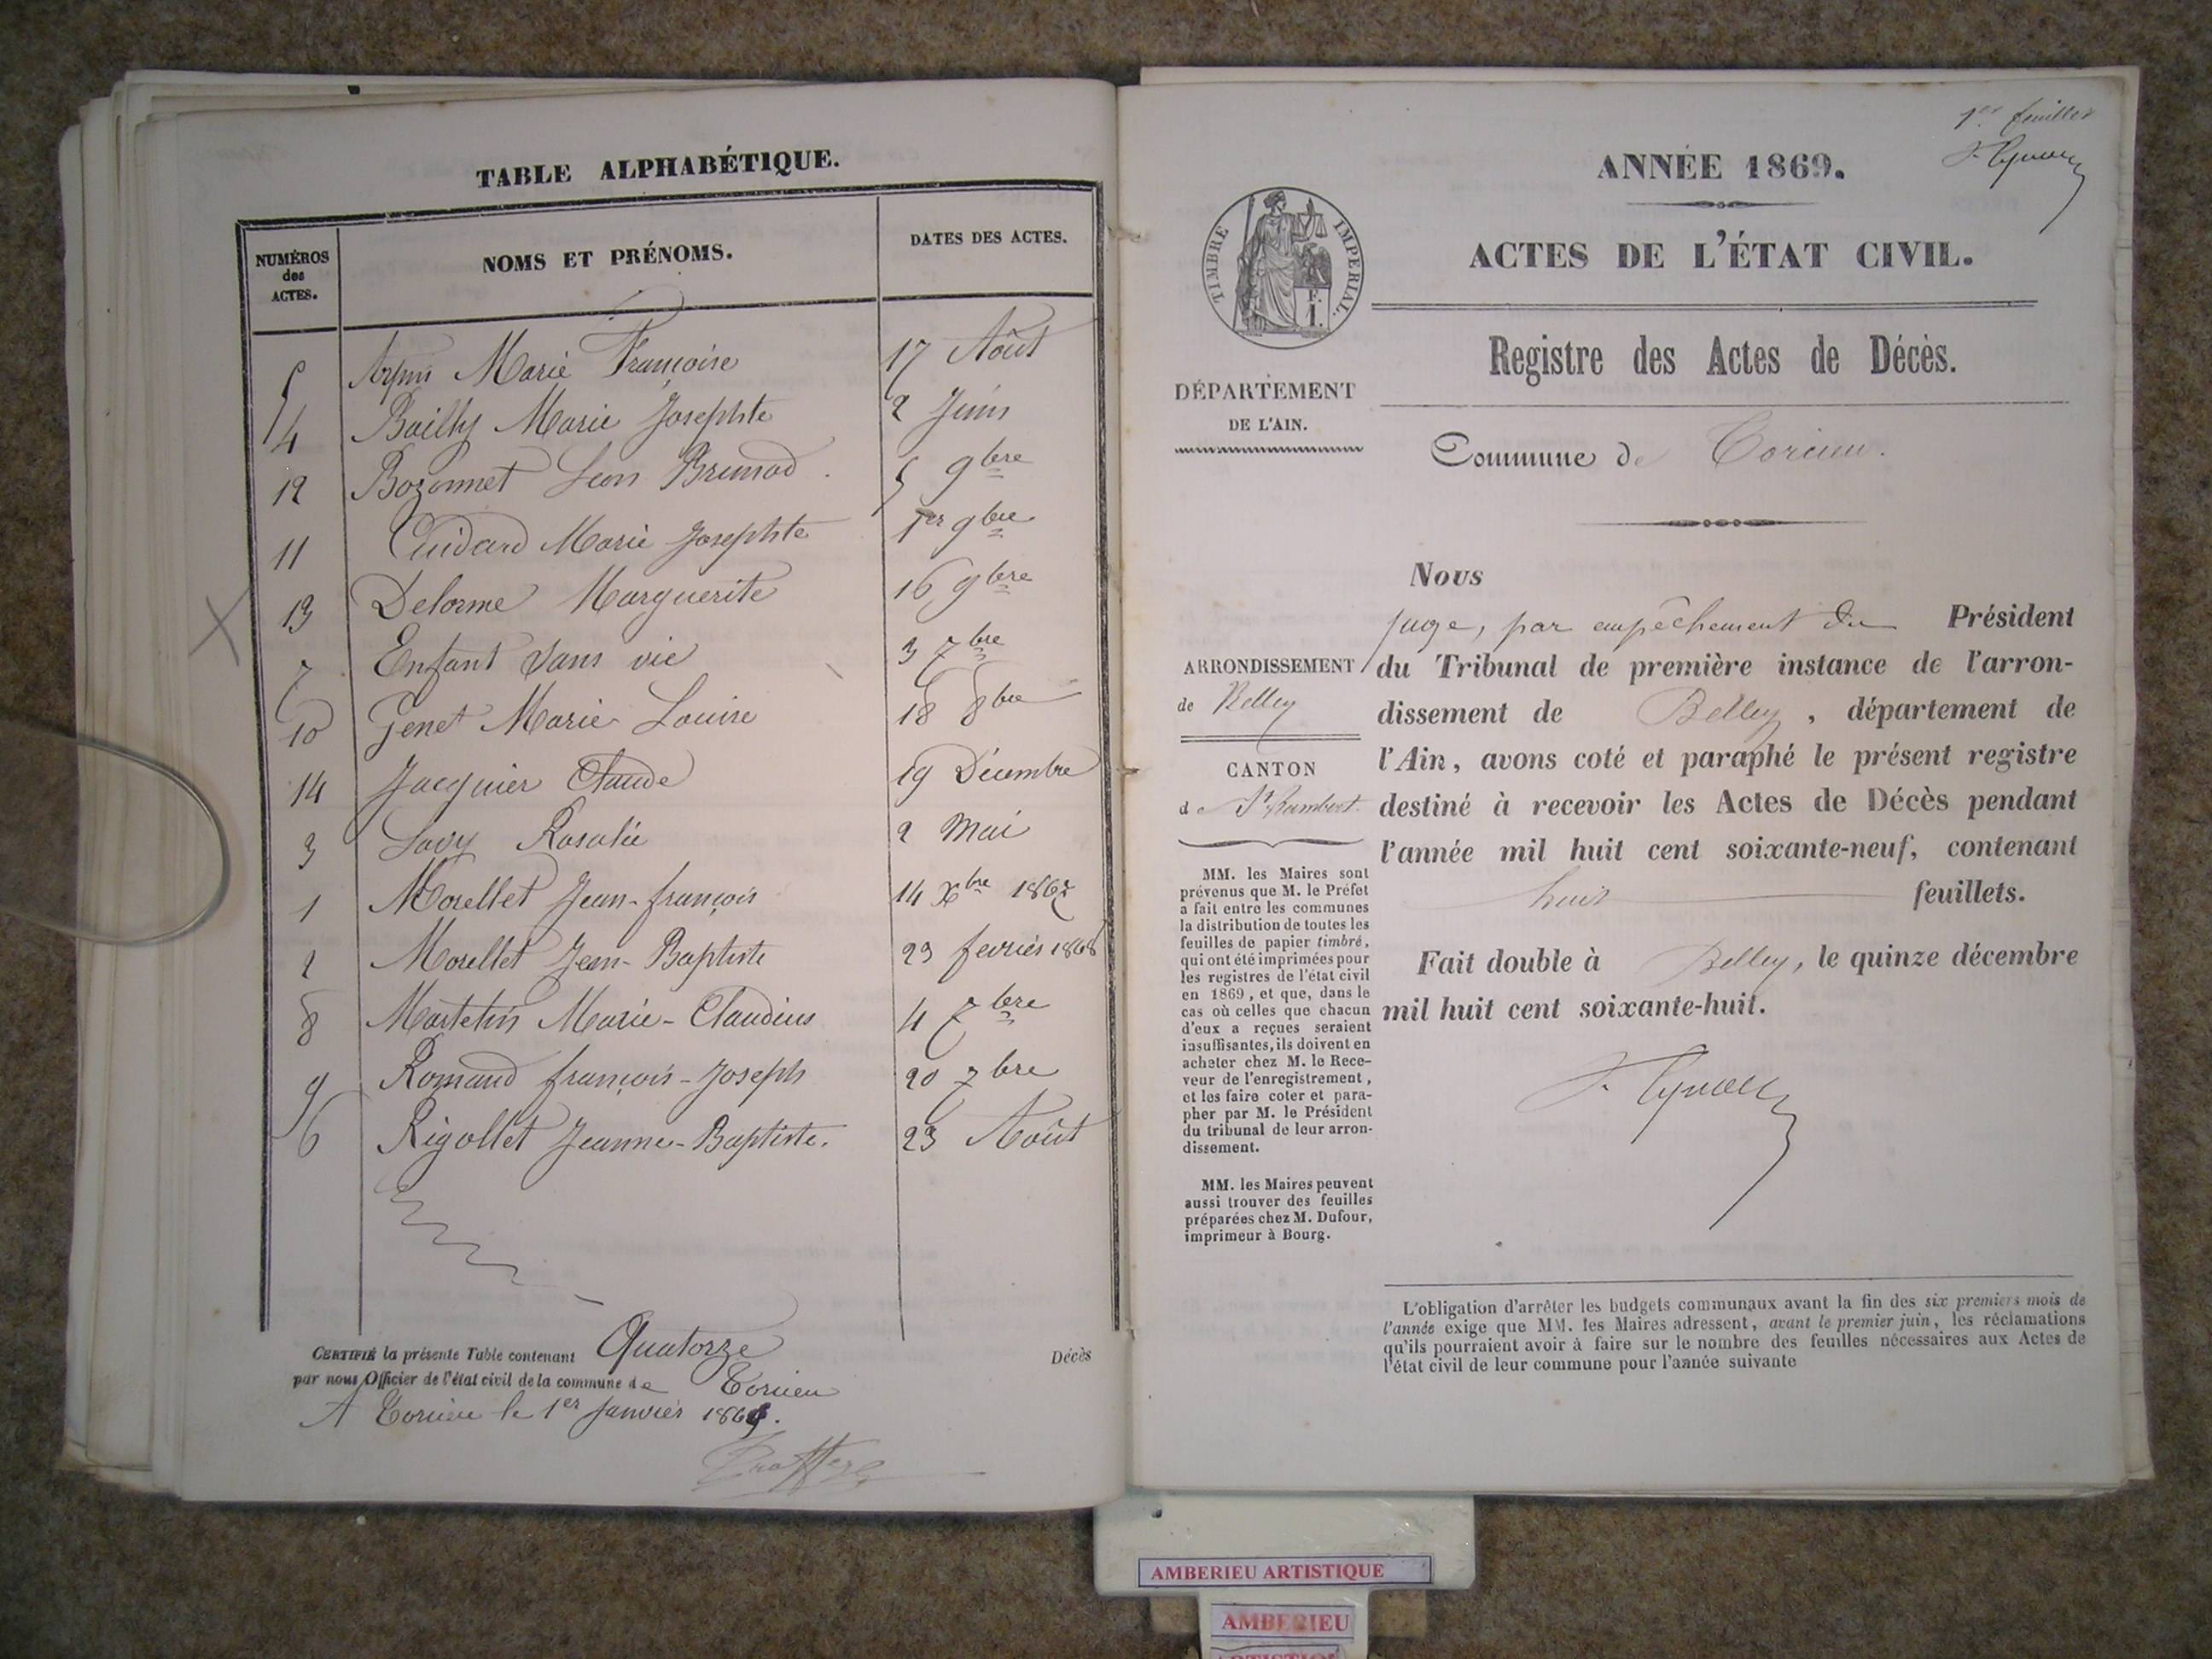 TABLE ALPHABÉTIQUE.
NUMÉROS des ACTES. NOMS ET PRÉNOMS. DATES DES ACTES.
5 Marie Françoise 17 Août
4 Bailly Marie Josephte 2 Juin
12 Bozonnet Leon Brunod 5 9bre
11 Cuidard Marie Josephte 1er 9bre
13 Delorme Marguerite 16 9bre
7 Enfant Sans vie 3 7bre
10 Genet Marie Louise 18 8bre
14 Jacquier Claude 19 Décembre
3 Savy Rosalie 2 Mai
1 Morellet Jean-françois 14 Xbre 1867
2 Morellet Jean-Baptiste 23 fevrier 1868
8 Martelin Marie-Claudius 4 7bre
9 Romand françois-Joseph 20 7bre
6 Rigollet Jeanne-Baptiste. 23 Août
CERTIFIÉ la présente Table contenant Quatorze Décès
par nous Officier de l'état civil de la commune de Torcieu
A Torcieu le 1er Janvier 1869.
1er feuillet
ANNÉE 1869.
TIMBRE IMPERIAL.
ACTES DE L'ÉTAT CIVIL.
Registre des Actes de Décès.
DÉPARTEMENT
DE L'AIN.
Commune de Torcieu.
ARRONDISSEMENT
de Belley
CANTON
de St Rambert
MM. les Maires sont
prévenus que M. le Préfet
a fait entre les communes
la distribution de toutes les
feuilles de papier timbré,
qui ont été imprimées pour
les registres de l'état civil
en 1869, et que, dans le
cas où celles que chacun
d'eux a reçues seraient
insuffisantes, ils doivent en
acheter chez M. le Rece-
veur de l'enregistrement,
et les faire coter et para-
pher par M. le Président
du tribunal de leur arron-
dissement.
MM. les Maires peuvent
aussi trouver des feuilles
préparées chez M. Dufour,
imprimeur à Bourg.
Nous
juge, par empêchement du Président
du Tribunal de première instance de l'arron-
dissement de Belley, département de
l'Ain, avons coté et paraphé le présent registre
destiné à recevoir les Actes de Décès pendant
l'année mil huit cent soixante-neuf, contenant
huit feuillets.
Fait double à Belley, le quinze décembre
mil huit cent soixante-huit.
L'obligation d'arrêter les budgets communaux avant la fin des six premiers mois de
l'année exige que MM. les Maires adressent, avant le premier juin, les réclamations
qu'ils pourraient avoir à faire sur le nombre des feuilles nécessaires aux Actes de
l'état civil de leur commune pour l'année suivante
AMBERIEU ARTISTIQUE
AMBERIEU
ARTISTIQUE